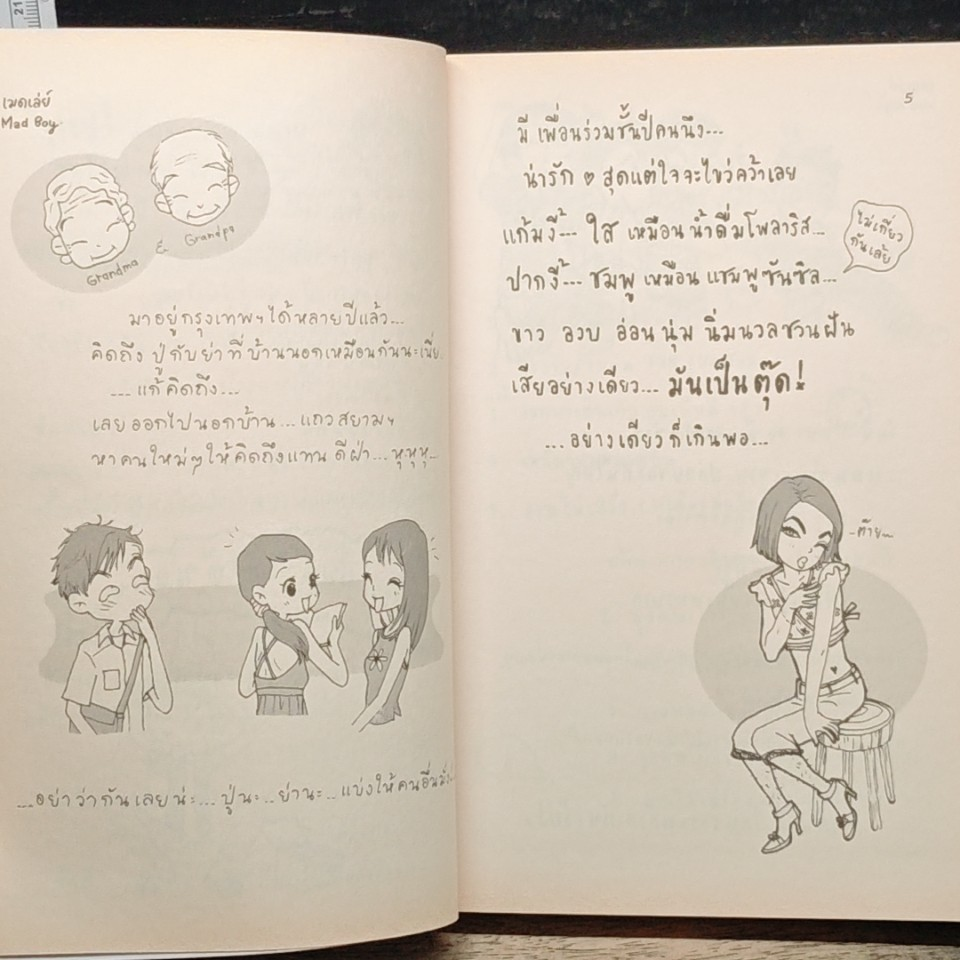 21
เมดเล่ย์
Mad Boy
Grandma & Grandpa
มาอยู่กรุงเทพฯได้หลายปีแล้ว...
คิดถึง ปู่ กับย่า ที่ บ้านนอกเหมือนกันนะเนี่ย
... แก้ คิดถึง...
เลยออกไปนอกบ้าน ... แถวสยามฯ
หาคนใหม่ๆให้คิดถึงแทน ดีฝ่า... หุหุหุ...
...อย่าว่ากันเลยน่ะ... ปู่นะ.. ย่านะ.. แบ่งให้คนอื่นมั่ง
5
มี เพื่อนร่วมชั้นปีคนนึง...
น่ารัก ♥ สุดแต่ใจจะไขว่คว้าเลย
แก้มงี้... ใส เหมือน น้ำดื่มโพลาริส...
ไม่เกี่ยว
กันเล้ย
ปากงี้... ชมพู เหมือน แชมพูซันซิล...
ขาว อวบ อ่อน นุ่ม นิ่มนวลชวนฝัน
เสียอย่างเดียว... มันเป็นตุ๊ด!
... อย่างเดียว ก็เกินพอ...
ต๊าย~